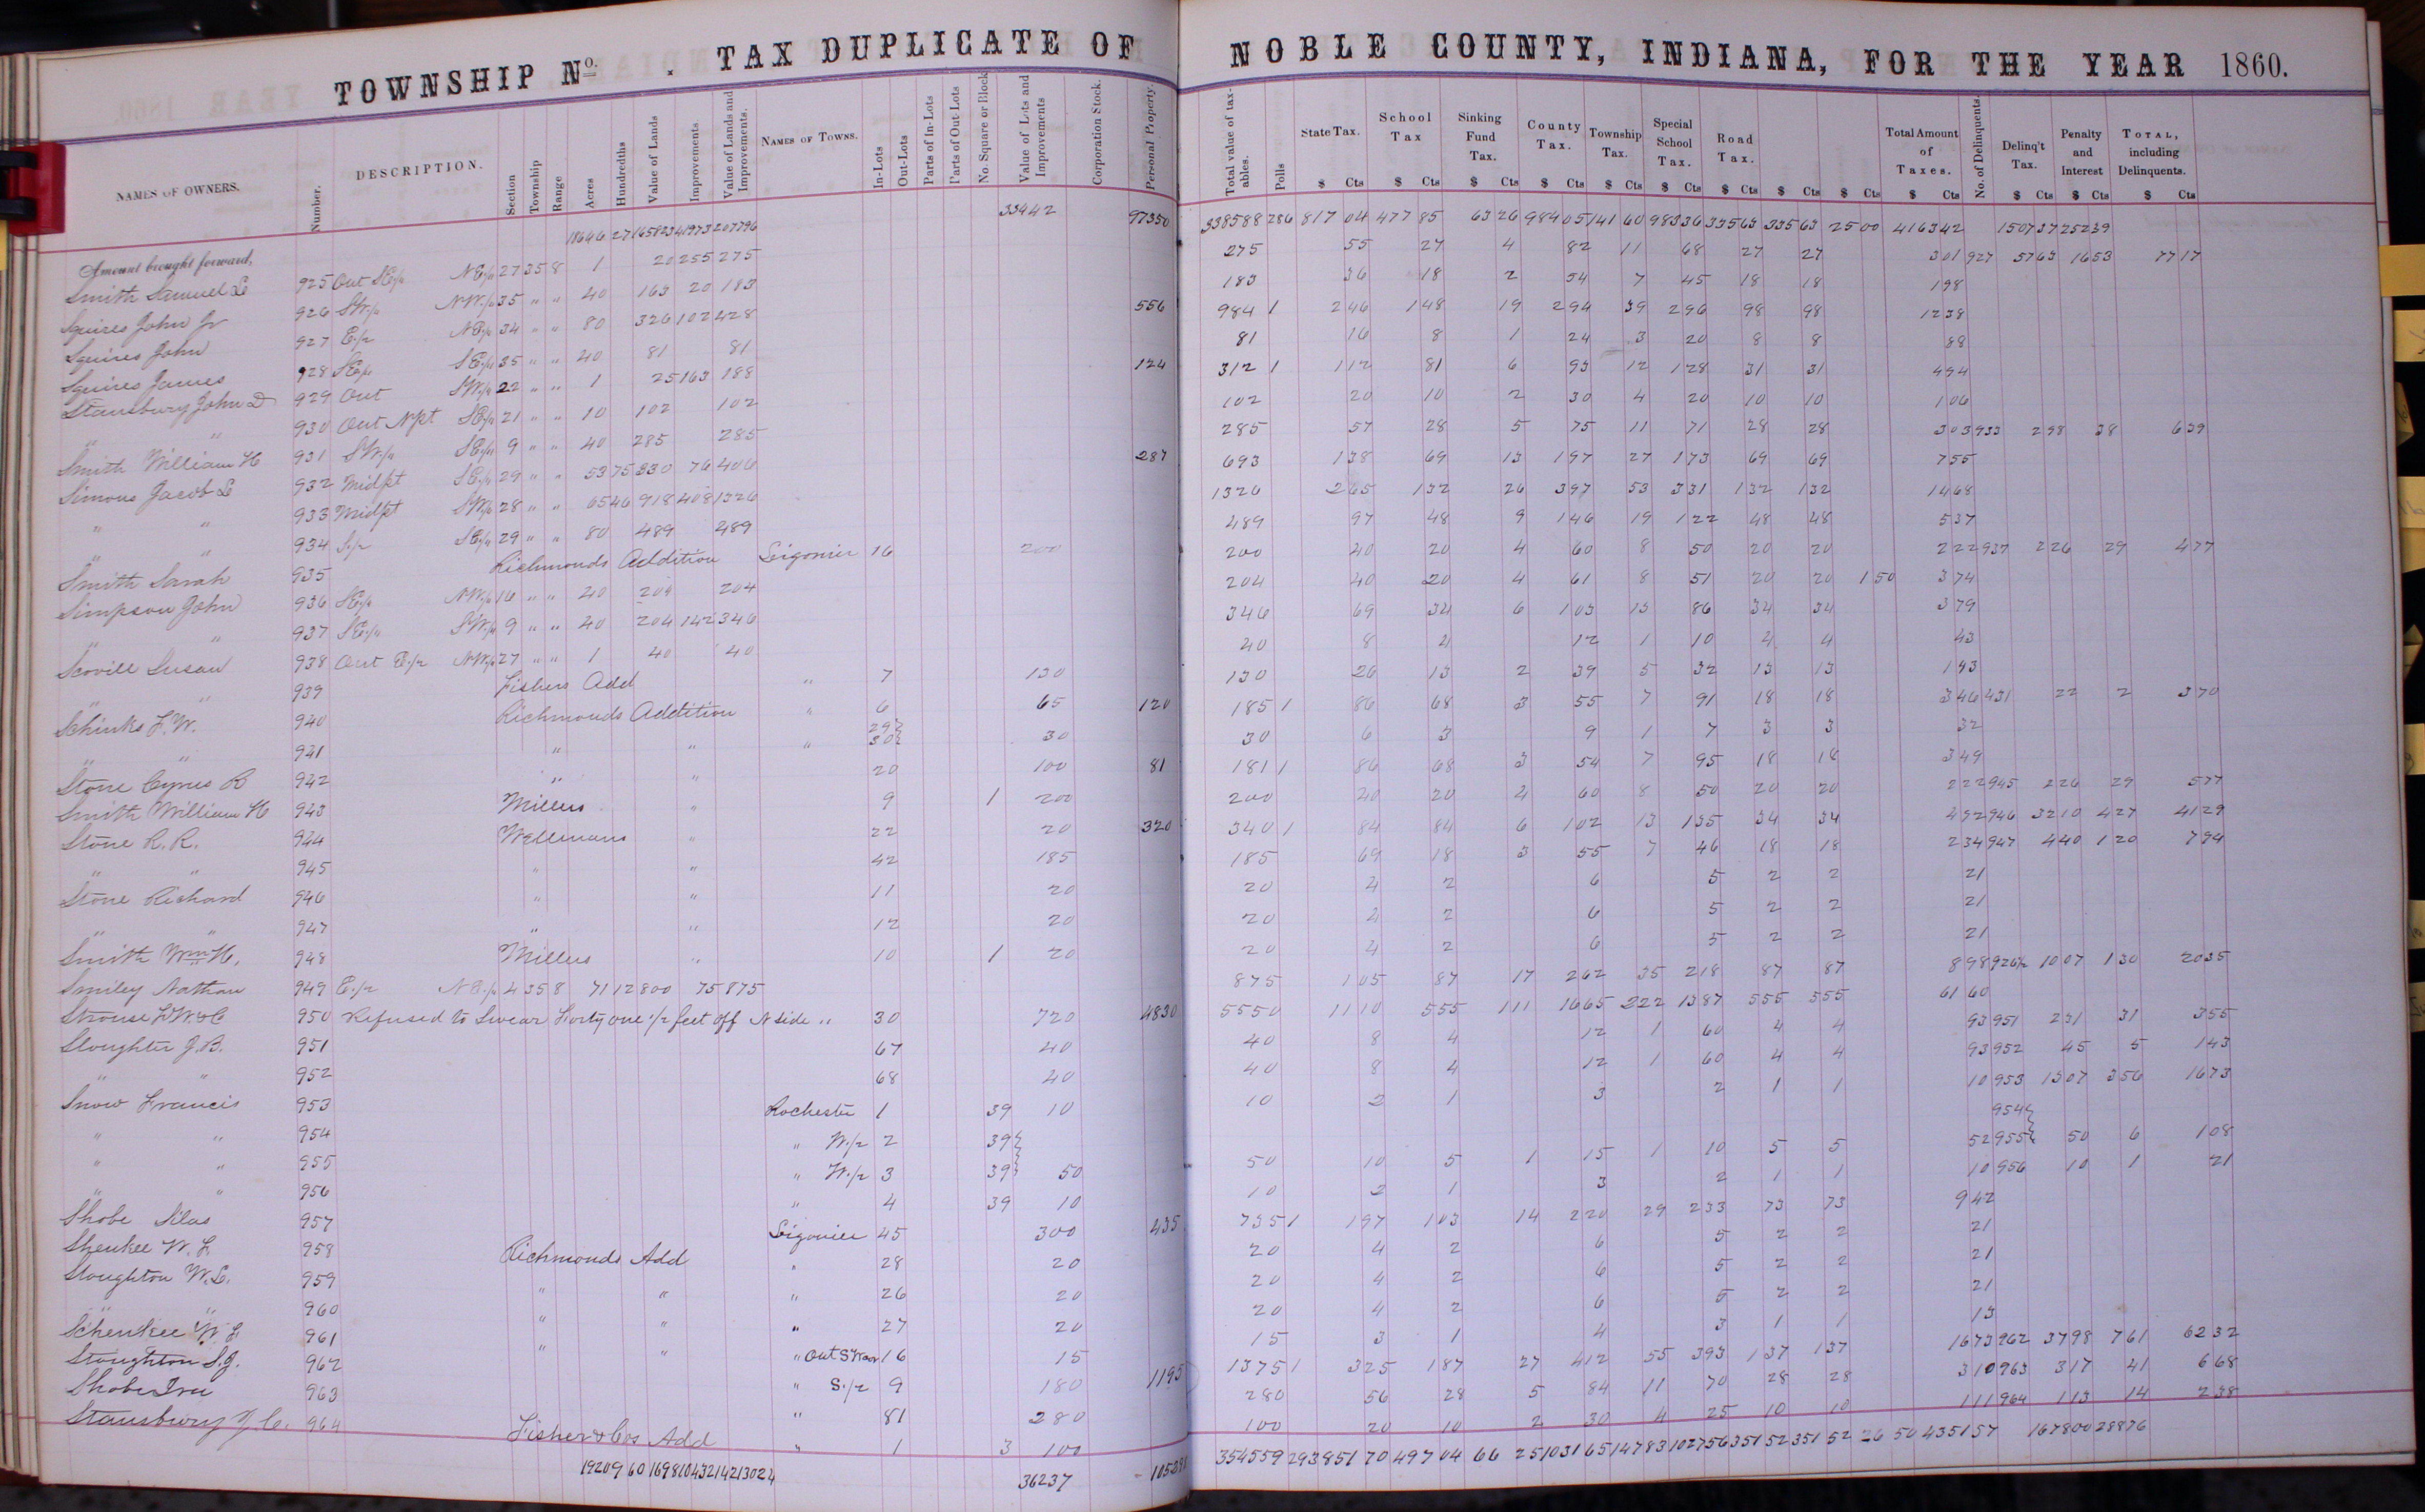 TOWNSHIP No. . TAX DUPLICATE OF NOBLE COUNTY, INDIANA, FOR THE YEAR 1860.
NAMES OF OWNERS. Number. DESCRIPTION. Section Township Range Acres Hundredths Value of Lands Improvements. Value of Lands and Improvements. NAMES OF TOWNS. In-Lots Out-Lots Parts of In-Lots Parts of Out Lots No. Square or Block Value of Lots and Improvements Corporation Stock. Personal Property. Total value of tax-ables. Polls State Tax. School Tax Sinking Fund Tax. County Tax. Township Tax. Special School Tax. Road Tax. Total Amount of Taxes. No. of Delinquents. Delinq't Tax. Penalty and Interest TOTAL, including Delinquents.
$ Cts $ Cts $ Cts $ Cts $ Cts $ Cts $ Cts $ Cts $ Cts $ Cts $ Cts $ Cts $ Cts
Amount brought forward, 18646 27 165823 41973 207796 33442 97350 338588 286 817 04 477 85 63 26 984 05 141 60 983 36 335 63 335 63 25 00 4163 42 1507 37 252 39
Smith Samuel L 925 Out SE/4 NE/4 27 35 8 1 20 255 275 275 55 27 4 82 11 68 27 27 3 01 927 57 63 16 53 77 17
Squires John Jr 926 SW/4 NW/4 35 " " 40 163 20 183 183 36 18 2 54 7 45 18 18 1 98
Squires John 927 E/2 NE/4 34 " " 80 326 102 428 556 984 1 2 46 1 48 19 2 94 39 2 96 98 98 12 38
Squires James 928 SE/4 SE/4 35 " " 40 81 81 81 16 8 1 24 3 20 8 8 88
Stansbury John D 929 Out SW/4 22 " " 1 25 163 188 124 312 1 1 12 81 6 93 12 1 28 31 31 4 94
" " 930 Out Npt SE/4 21 " " 10 102 102 102 20 10 2 30 4 20 10 10 1 06
Smith William H 931 SW/4 SE/4 9 " " 40 285 285 285 57 28 5 75 11 71 28 28 3 03 933 2 98 38 6 39
Simons Jacob L 932 Midpt SE/4 29 " " 53 75 330 76 406 287 693 1 38 69 13 1 97 27 1 73 69 69 7 55
" " 933 Midpt SW/4 28 " " 65 46 918 408 1326 1326 2 65 1 32 26 3 97 53 3 31 1 32 1 32 14 68
" " 934 S/2 SE/4 29 " " 80 489 489 489 97 48 9 1 46 19 1 22 48 48 5 37
Smith Sarah 935 Richmonds Addition Ligonier 16 200 200 40 20 4 60 8 50 20 20 2 22 937 2 26 29 4 77
Simpson John 936 SE/4 NW/4 16 " " 40 204 204 204 40 20 4 61 8 51 20 20 1 50 3 74
" " 937 SE/4 SW/4 9 " " 40 204 142 346 346 69 34 6 1 03 13 86 34 34 3 79
Scovill Susan 938 Out E/2 NW/4 27 " " 1 40 40 40 8 4 12 1 10 4 4 43
" " 939 Fishers Add " 7 130 130 26 13 2 39 5 32 13 13 1 43
Schinks F.W. 940 Richmonds Addition " 6 65 120 185 1 86 68 3 55 7 91 18 18 3 46 431 22 2 3 70
" " 941 " " " 29 30 30 30 6 3 9 1 7 3 3 32
Stone Cyrus B 942 " " 20 100 81 181 1 86 68 3 54 7 95 18 18 3 49
Smith William H 943 Millers " 9 1 200 200 40 20 4 60 8 50 20 20 2 22 945 2 26 29 5 77
Stone R. R. 944 Wellmans " 22 20 320 340 1 84 84 6 1 02 13 1 35 34 34 4 92 946 32 10 4 27 41 29
" " 945 " " 42 185 185 69 18 3 55 7 46 18 18 2 34 947 4 40 1 20 7 94
Stone Richard 946 " " 11 20 20 4 2 6 5 2 2 21
" " 947 " " 12 20 20 4 2 6 5 2 2 21
Smith Wm H. 948 Millers " 10 1 20 20 4 2 6 5 2 2 21
Smiley Nathan 949 E/2 NE/4 4 35 8 71 12 800 75 875 875 1 05 87 17 2 62 35 2 18 87 87 8 98 926½ 10 07 1 30 20 35
Strouse F.W.&C 950 Refused to Swear Forty one 1/2 feet off N side " 30 720 4830 5550 11 10 5 55 1 11 16 65 2 22 13 87 5 55 5 55 61 60
Sloughter J.B. 951 67 40 40 8 4 12 1 60 4 4 93 951 2 31 31 3 55
" " 952 68 40 40 8 4 12 1 60 4 4 93 952 45 5 1 43
Snow Francis 953 Rochester 1 39 10 10 2 1 3 2 1 1 10 953 13 07 3 56 16 73
" " 954 " W/2 2 39 954
" " 955 " W/2 3 39 50 50 10 5 1 15 1 10 5 5 52 955 50 6 1 08
" " 956 " 4 39 10 10 2 1 3 2 1 1 10 956 10 1 21
Shobe Silas 957 Ligonier 45 300 435 735 1 1 97 1 03 14 2 20 29 2 33 73 73 9 42
Shenkee W. F. 958 Richmonds Add " 28 20 20 4 2 6 5 2 2 21
Stoughton W.L. 959 " " " 26 20 20 4 2 6 5 2 2 21
" " 960 " " " 27 20 20 4 2 6 5 2 2 21
Schenkee W. F. 961 " " " Out SW cor 16 15 15 3 1 4 3 1 1 13
Stoughton S.J. 962 " S/2 9 180 1195 1375 1 3 25 1 87 27 4 12 55 3 93 1 37 1 37 16 73 962 37 98 7 61 62 32
Shobe Ira 963 " 81 280 280 56 28 5 84 11 70 28 28 3 10 963 3 17 41 6 68
Stansbury J C. 964 Fisher & Cos Add " 1 3 100 100 20 10 2 30 4 25 10 10 1 11 964 1 13 14 2 38
19209 60 169810 43214 213024 36237 354559 293 851 70 497 04 66 25 1031 65 147 83 1027 56 351 52 351 52 26 50 4351 57 1678 00 288 76